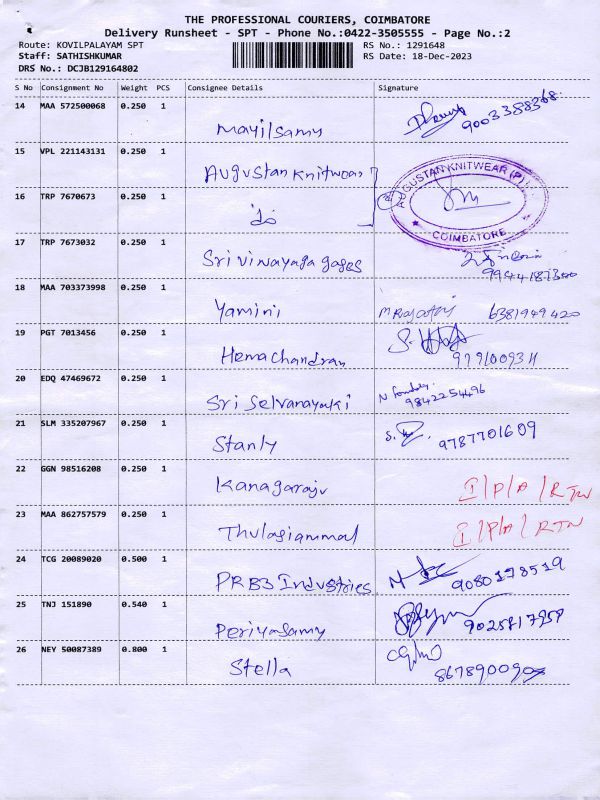 THE PROFESSIONAL COURIERS, COIMBATORE
Delivery Runsheet - SPT - Phone No.:0422-3505555 - Page No.:2
Route: KOVILPALAYAM SPT RS No.: 1291648
Staff: SATHISHKUMAR RS Date: 18-Dec-2023
DRS No.: DCJB129164802
S No Consignment No Weight PCS Consignee Details Signature
14 MAA 572500068 0.250 1
Mayilsamy 9003388368
15 VPL 221143131 0.250 1
Augustan knitwear
AUGUSTAN KNITWEAR (P)
COIMBATORE
16 TRP 7670673 0.250 1
do
17 TRP 7673032 0.250 1
Sri vinayaga gages
18 MAA 703373998 0.250 1
Yamini 6381949420
19 PGT 7013456 0.250 1
Hemachandran
20 EDQ 47469672 0.250 1
Sri Selvanayaki 9842254496
21 SLM 335207967 0.250 1
Stanly 9787701609
22 GGN 98516208 0.250 1
Kanagaraju I/P/A/RTN
23 MAA 862757579 0.250 1
Thulasiammal I/P/A/RTN
24 TCG 20089020 0.500 1
PRB3 Industries 9080178519
25 TNJ 151890 0.540 1
Periyasamy 9025817958
26 NEY 50087389 0.800 1
Stella